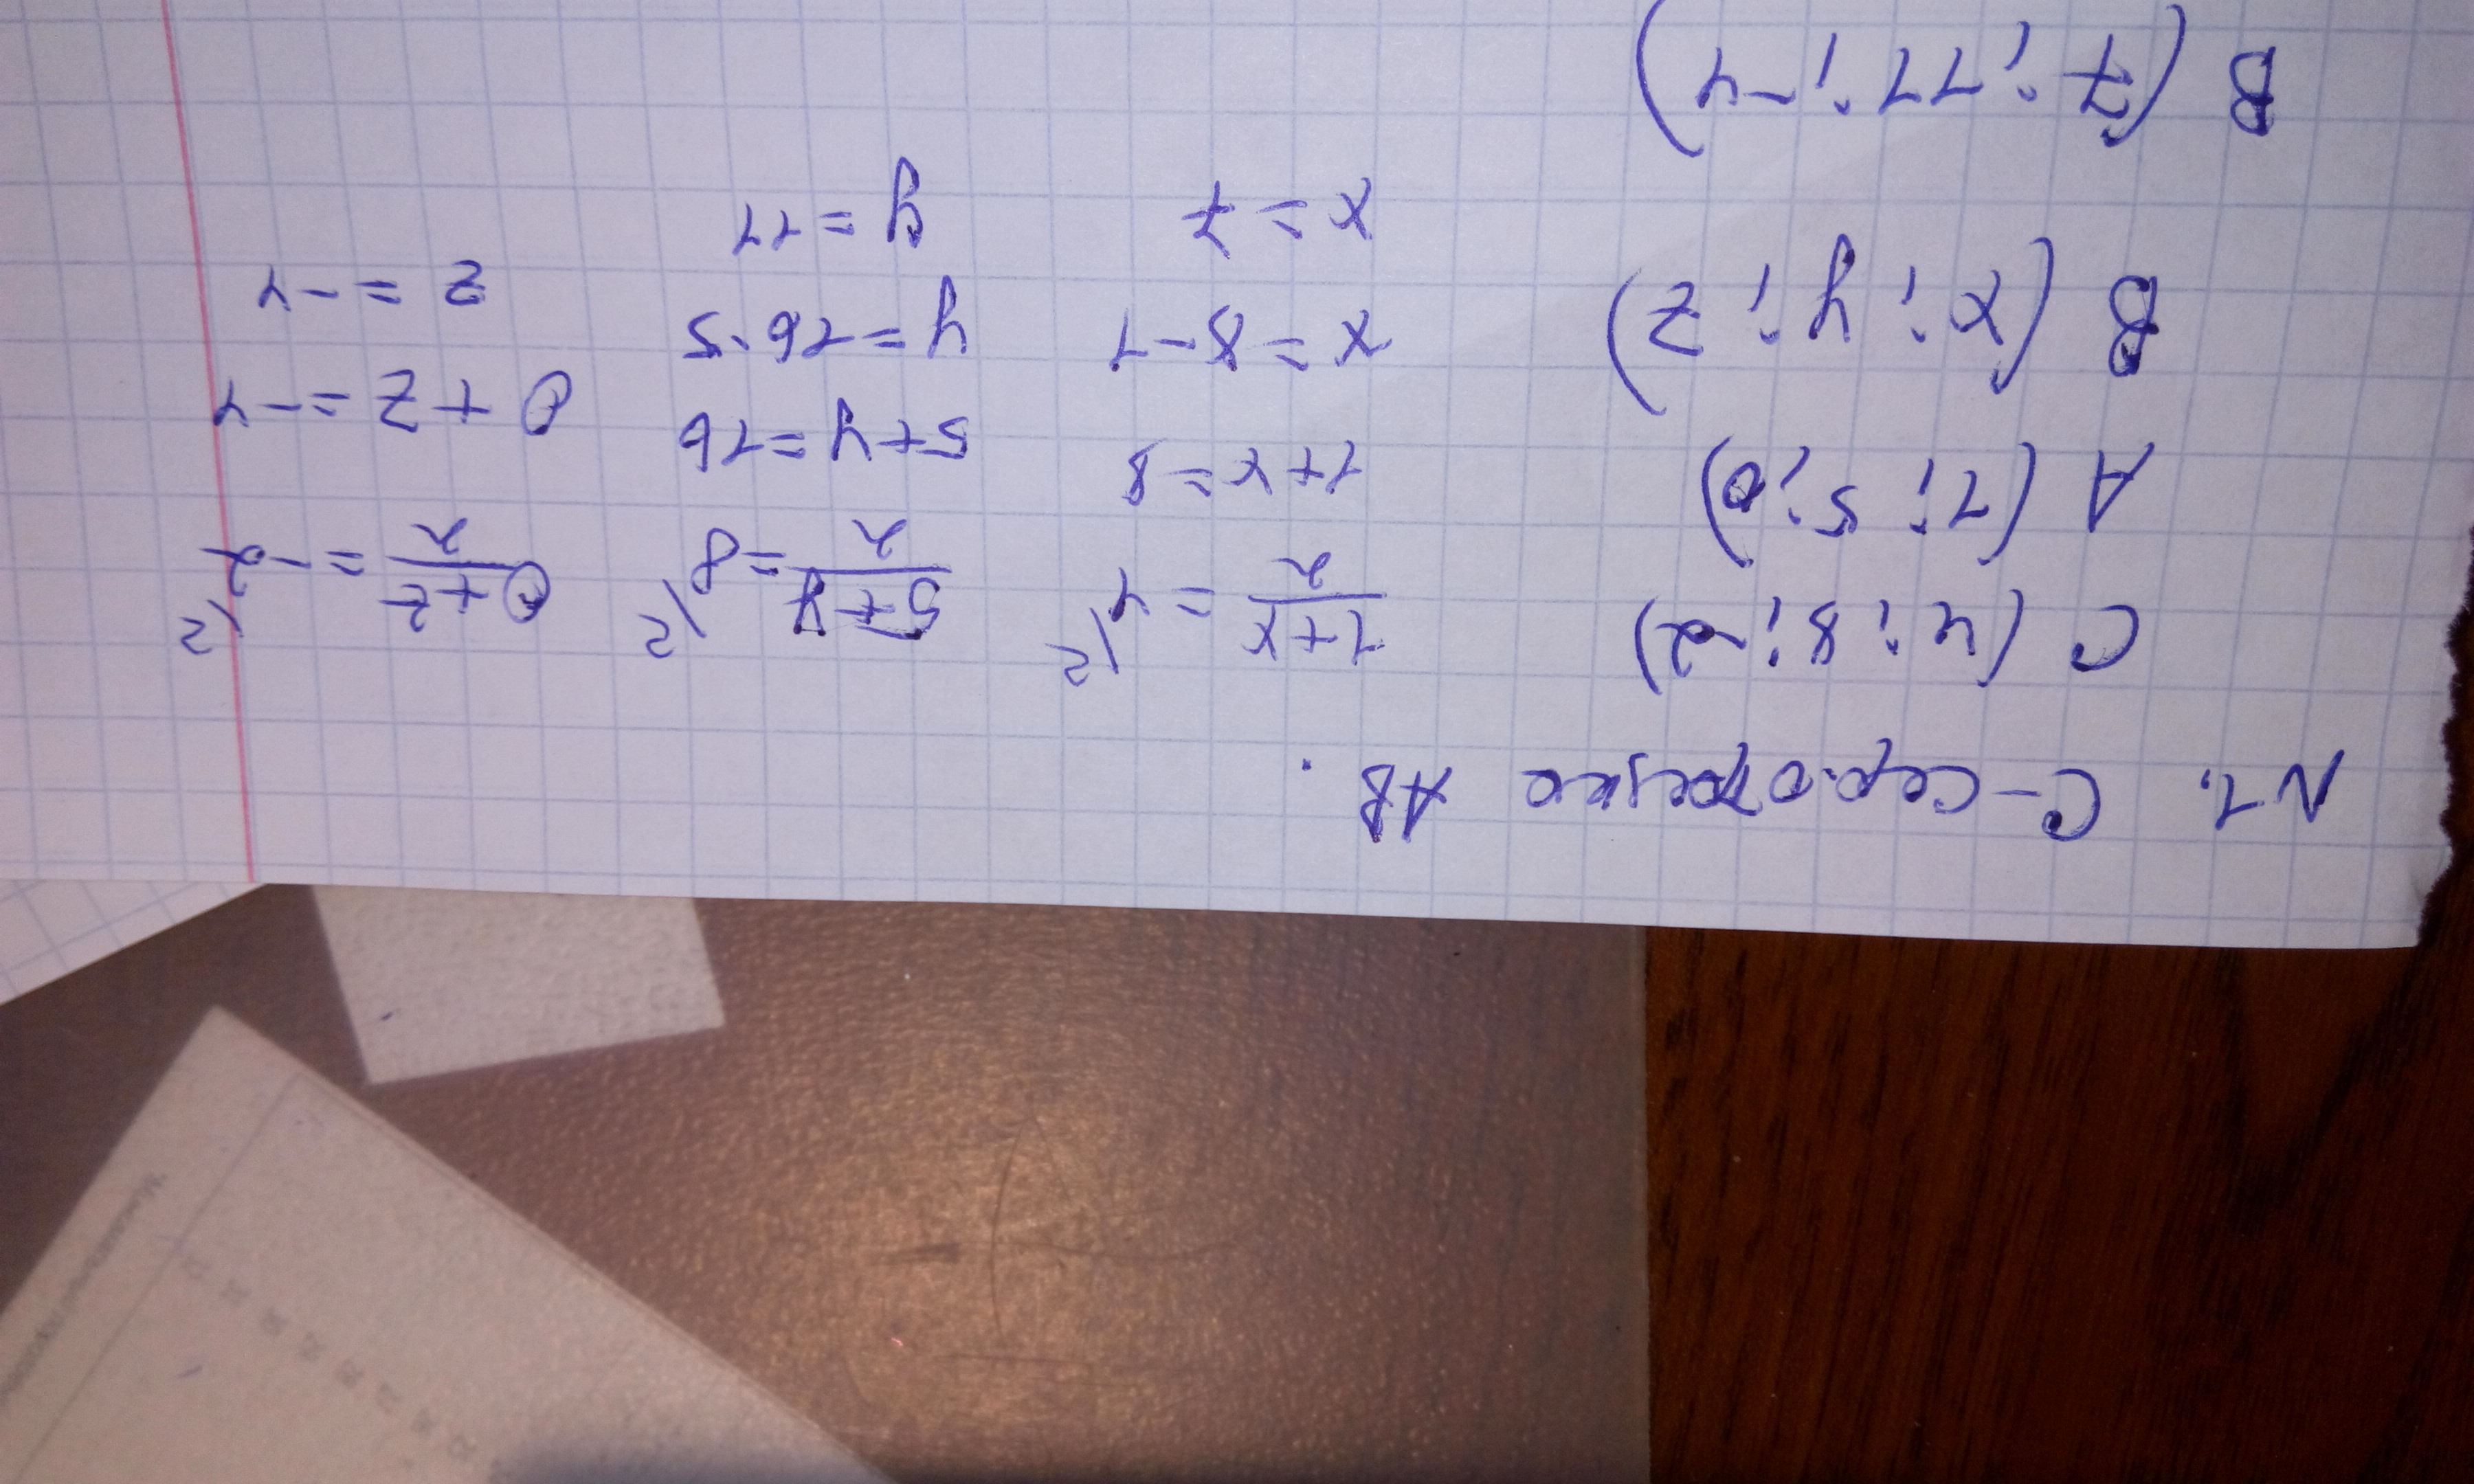 N1. C – сер. отрезка AB.
C (4; 8; -2)
A (1; 5; 0)
B (x; y; z)
B (7; 11; -4)
1+x/2 = 4 \2
1+x=8
x=8-1
x=7
5+y/2 = 8 \2
5+y=16
y=16-5
y=11
0+z/2 = -2 \2
0+z=-4
z=-4